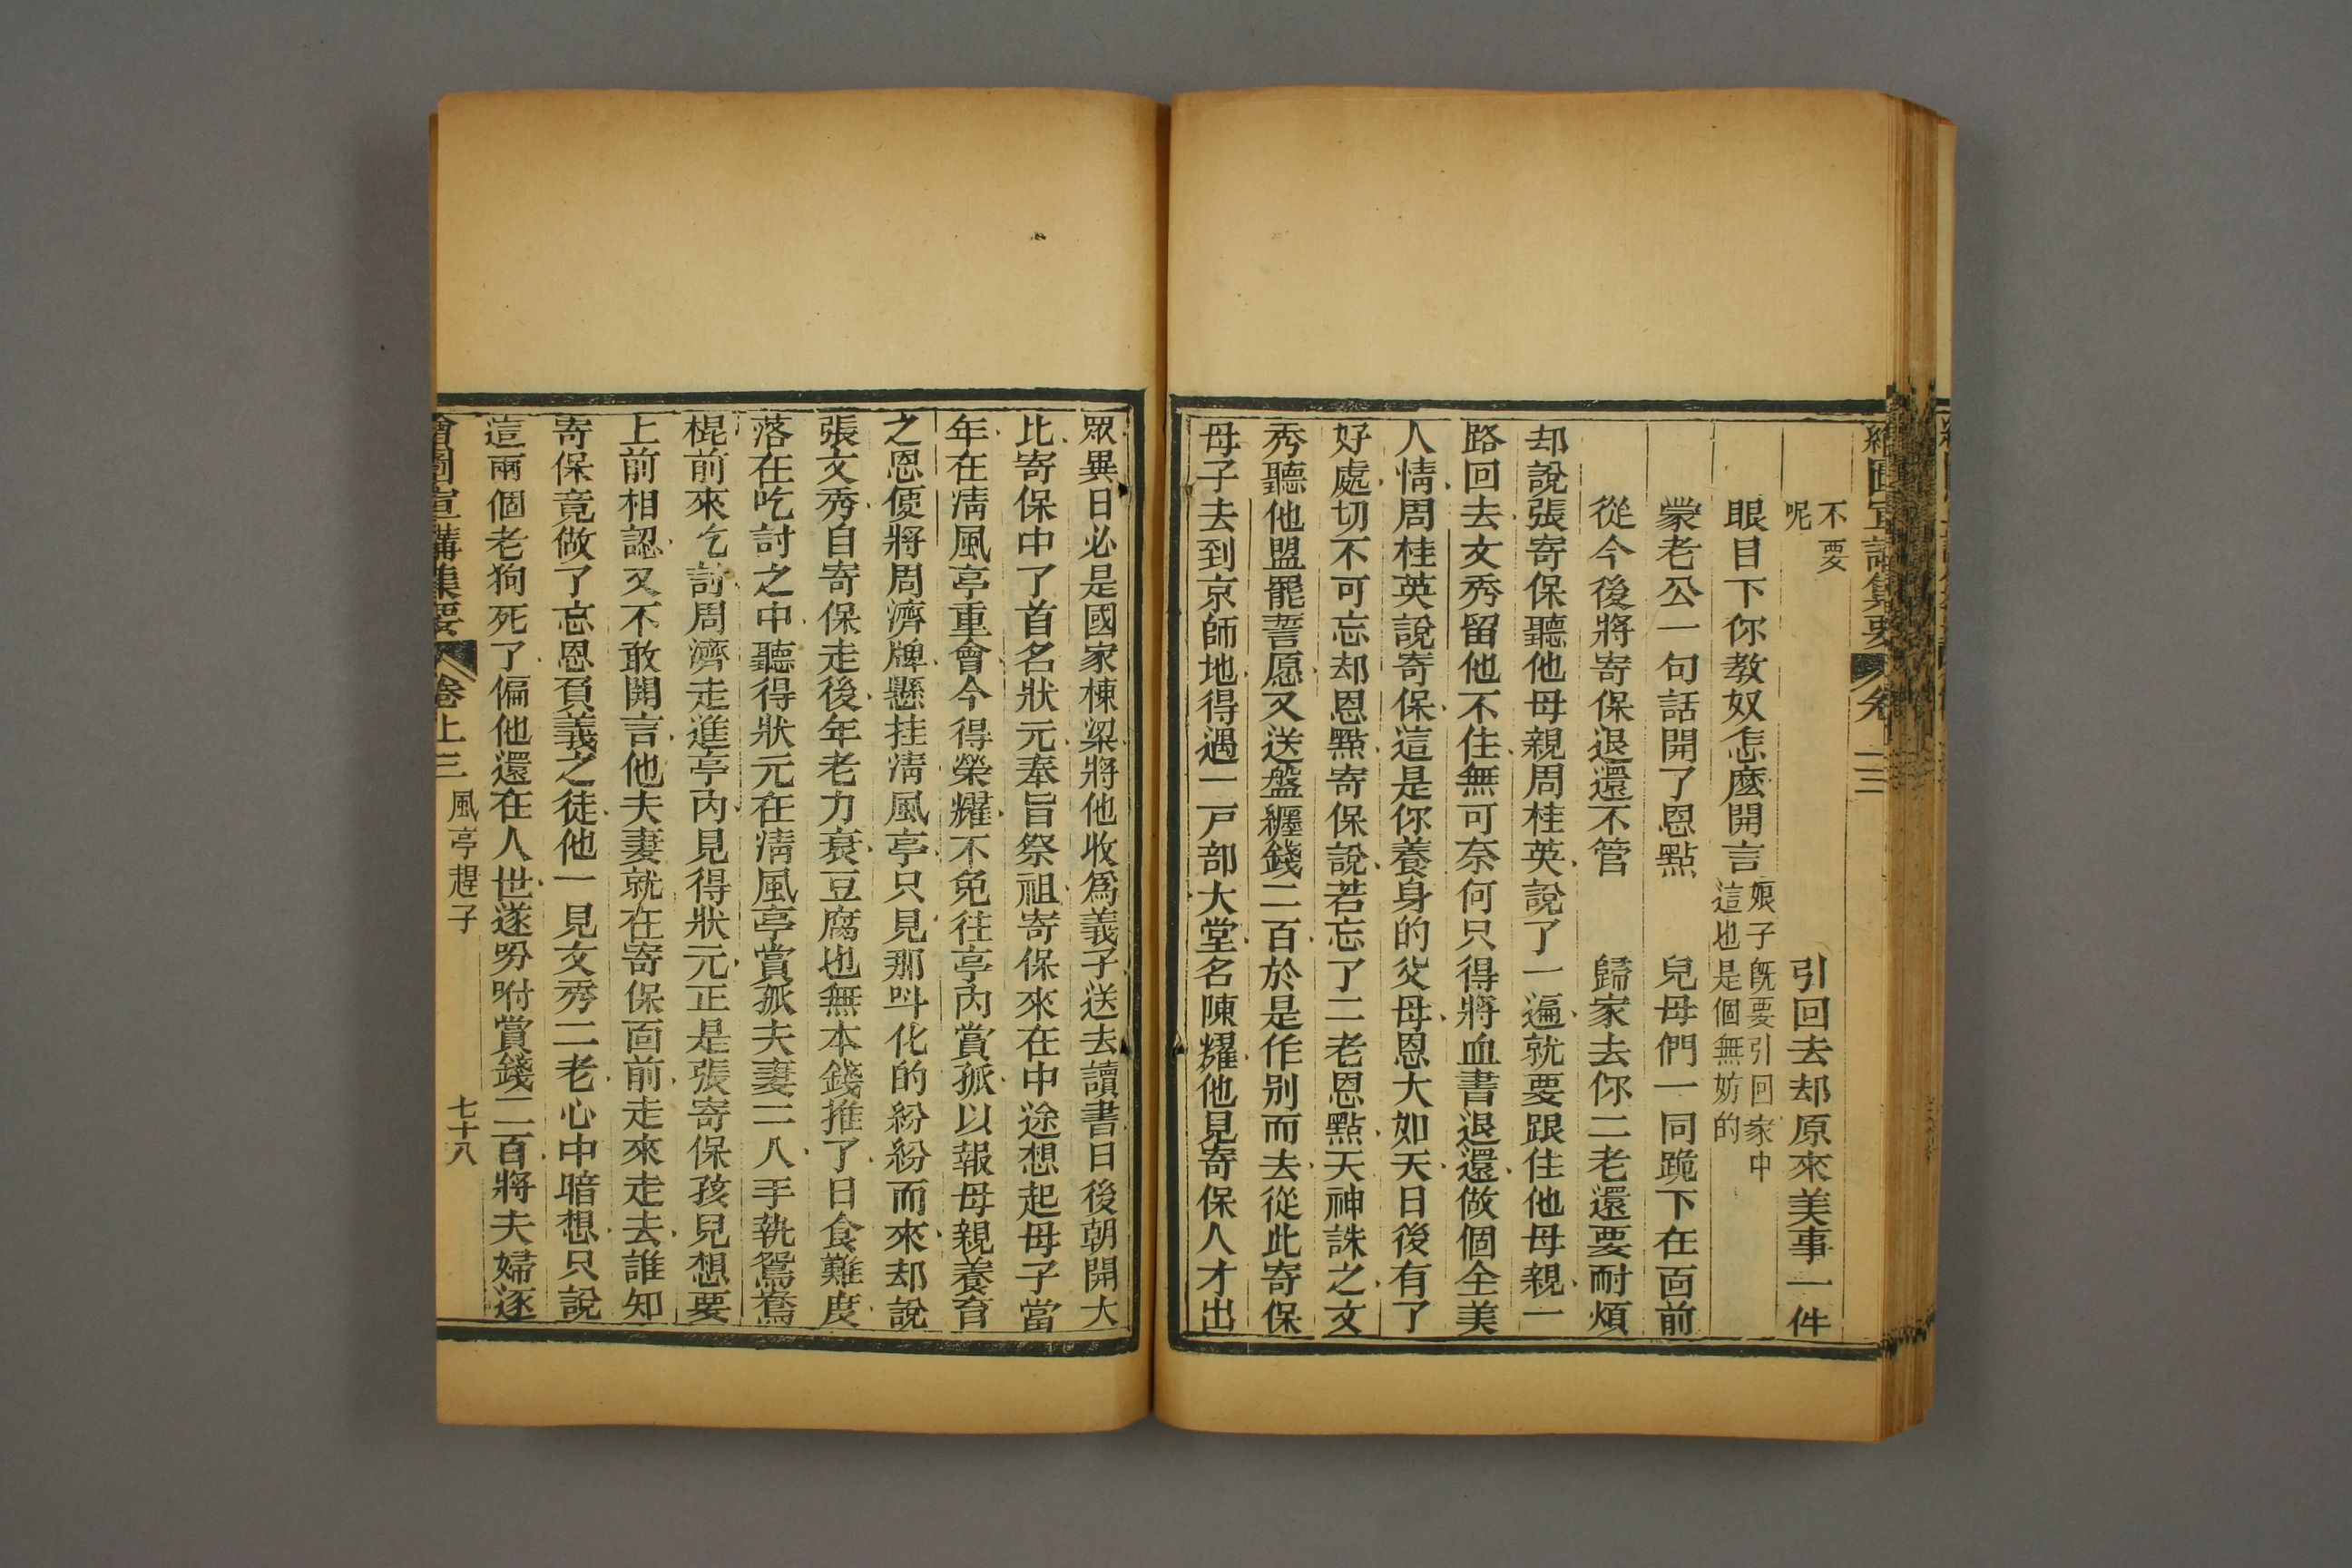 不要
呢
引回去却原來美事一件
眼目下你教奴怎麽開言 娘子旣要引回家中
這也是個無妨的
蒙老公一句話開了恩點 兒母們一同跪下在面前
從今後將寄保退還不管 歸家去你二老還要耐煩
却說張寄保聽他母親周桂英說了一遍就要跟住他母親一
路回去文秀留他不住無可奈何只得將血書退還做個全美
人情周桂英說寄保這是你養身的父母恩大如天日後有了
好處切不可忘却恩點寄保說若忘了二老恩點天神誅之文
秀聽他盟罷誓愿又送盤纏錢二百於是作別而去從此寄保
母子去到京師地得遇一戸部大堂名陳耀他見寄保人才出
眾異日必是國家棟梁將他收爲義子送去讀書日後朝開大
比寄保中了首名狀元奉旨祭祖寄保來在中途想起母子當
年在清風亭重會今得榮耀不免往亭內賞孤以報母親養育
之恩便將周濟牌懸挂清風亭只見那叫化的紛紛而來却說
張文秀自寄保走後年老力衰豆腐也無本錢推了日食難度
落在吃討之中聽得狀元在清風亭賞孤夫妻二人手執鴛鴦
棍前來乞討周濟走進亭內見得狀元正是張寄保孩兒想要
上前相認又不敢開言他夫妻就在寄保面前走來走去誰知
寄保竟做了忘恩負義之徒他一見文秀二老心中暗想只說
這兩個老狗死了偏他還在人世遂吩咐賞錢二百將夫婦逐
繪圖宣講集要 卷上三 風亭趕子 七十八